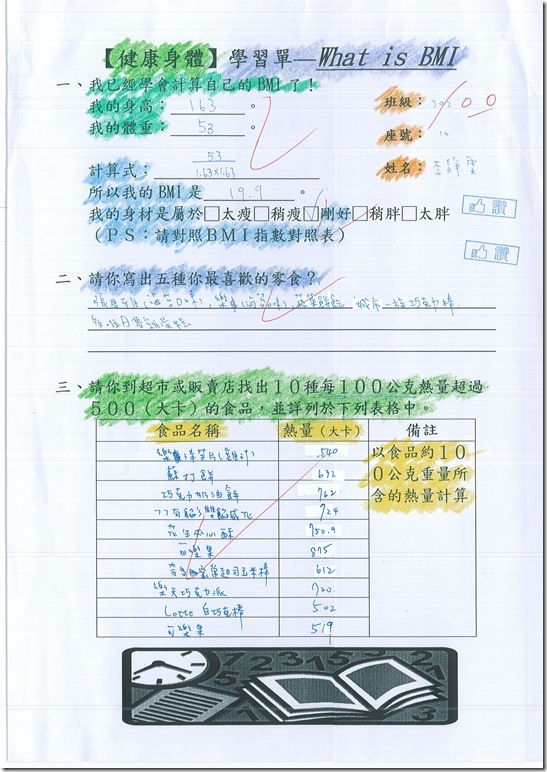 【健康身體】學習單—What is BMI
一、我已經學會計算自己的BMI了！
我的身高：163。
班級：702
100
我的體重：53。
座號：
計算式：53/1.63×1.63
姓名：李靜雯
所以我的BMI是19.9。
我的身材是屬於□太瘦□稍瘦☑剛好□稍胖□太胖
讚
（PS：請對照BMI指數對照表）
讚
二、請你寫出五種你最喜歡的零食？
城市一族巧克力棒
三、請你到超市或販賣店找出10種每100公克熱量超過
500（大卡）的食品，並詳列於下列表格中。
食品名稱 熱量（大卡） 備註
540 以食品約100公克重量所含的熱量計算
蘇打餅 632
巧克力奶油餅 762
724
花生夾心酥 750.9
可樂果 875
612
樂天巧克力派 720
Lotte 白巧克棒 502
可樂果 519